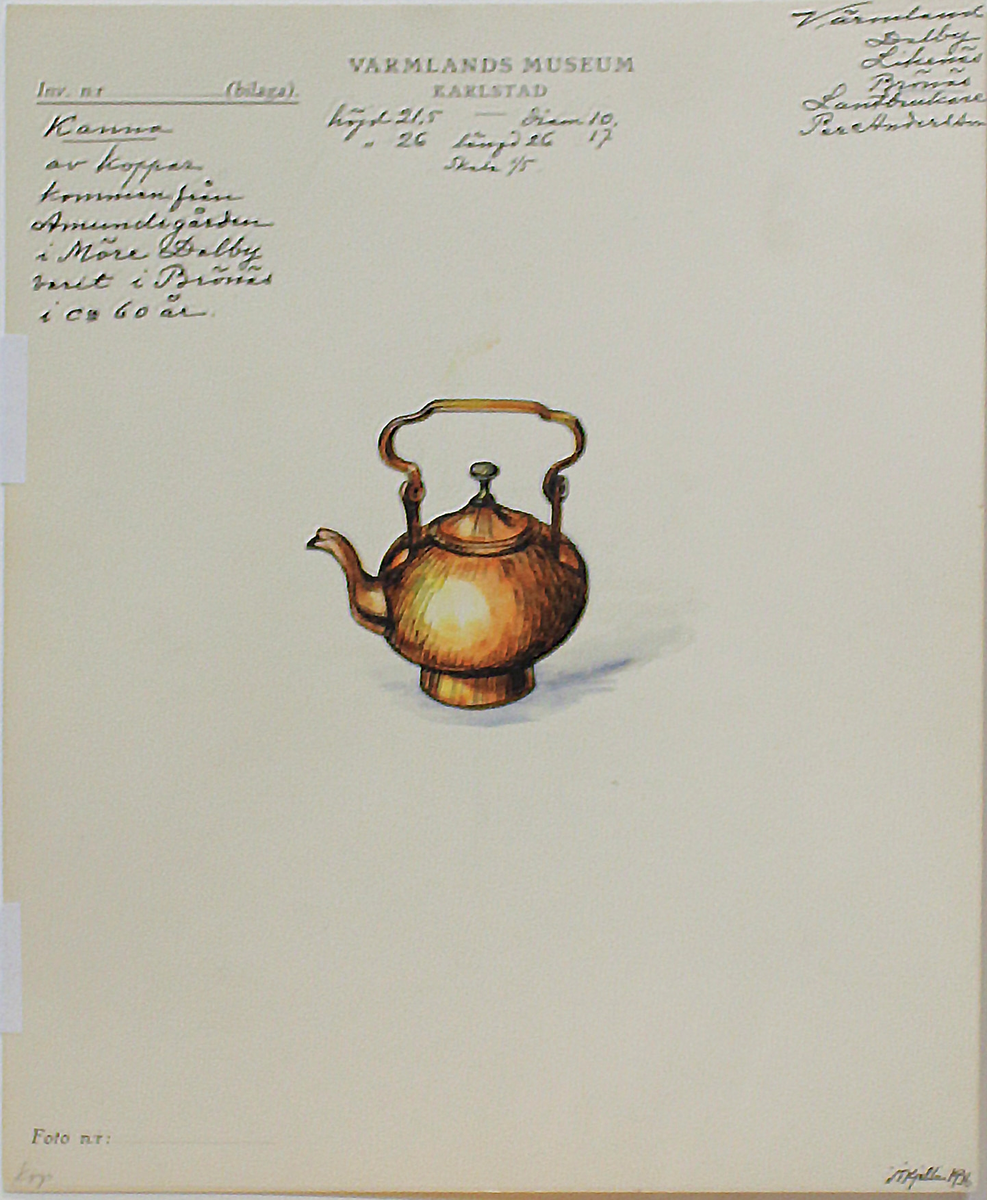 Värmland
Dalby
Likenäs
Brönäs
Lantbrukare
Per Andersson
VÄRMLANDS MUSEUM
KARLSTAD
Inv. n:r (bilaga).
höjd 21,5 — Diam 10,
" 26 längd 26 17
Skala 1/5
Kanna
av koppar
kommen från
Amundsgården
i Möre Dalby
varit i Brönäs
i ca 60 år.
Foto n:r:
kop